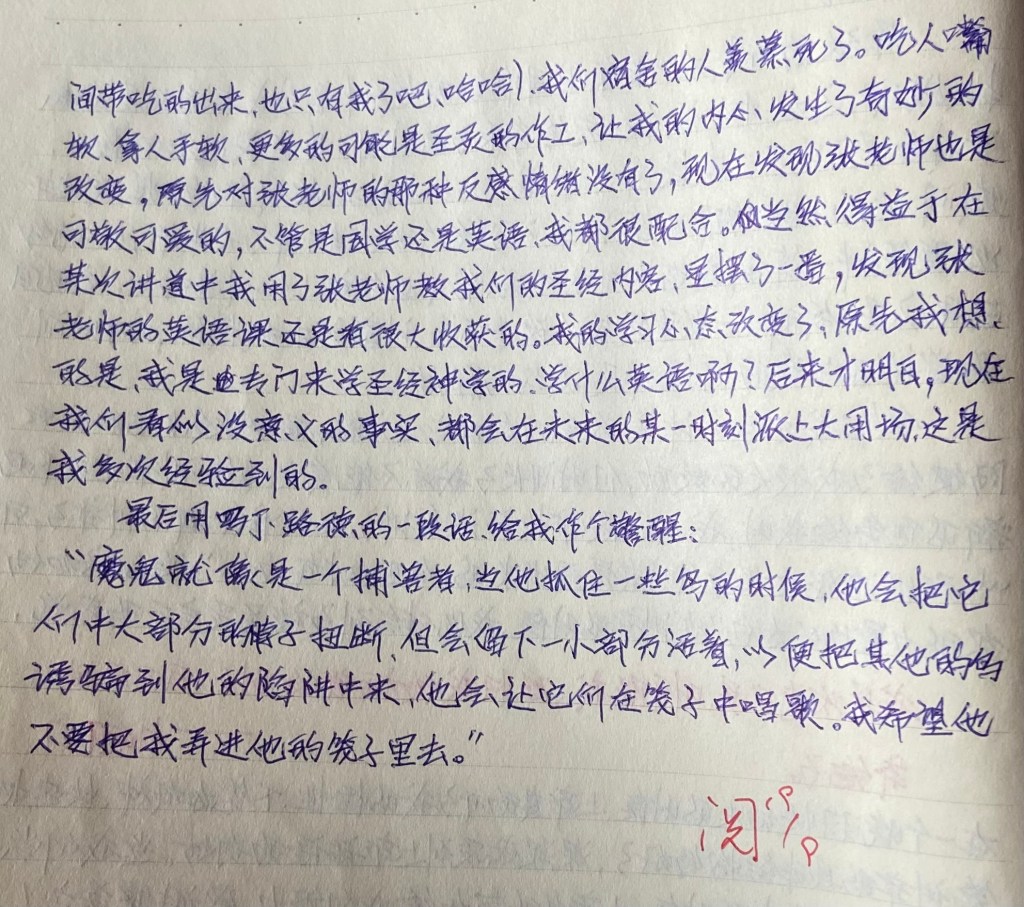 间带吃的出来，也只有我了吧、哈哈），我们宿舍的人羡慕死了。吃人嘴
软、拿人手软、更多的可能是圣灵的作工，让我的内心、发生了奇妙的
改变，原先对张老师的那种反感情绪没有了，现在发现张老师也是
可敬可爱的，不管是国学还是英语、我都很配合。但当然得益于在
某次讲道中我用了张老师教我们的圣经内容、显摆了一番，发现张
老师的英语课还是有很大收获的。我的学习心态改变了、原先我想
的是、我是专门来学圣经神学的、学什么英语啊？后来才明白，现在
我们看似没意义的事实、都会在未来的某一时刻派上大用场，这是
我多次经验到的。
最后用马丁·路德的一段话、给我作个警醒：
“魔鬼就像是一个捕兽者，当他抓住一些鸟的时候，他会把它
们中大部分的脖子扭断，但会留下一小部分活着，以便把其他的鸟
诱骗到他的陷阱中来，他会让它们在笼子中唱歌。我希望他
不要把我弄进他的笼子里去。”
阅